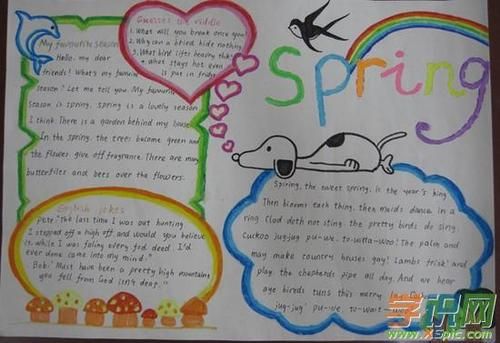 My favourite season
Hello, my dear
friends! What's my favourite
season? Let me tell you. My favourite
season is spring, spring is a lovely season.
I think. There is a garden behind my house.
In the spring, the trees become green and
the flower give off fragrance. There are many
butterflies and bees over the flowers.
Guesses the riddle
1. What will you break once you
2. Why can a blind hide nothing
3. What bird lifts heavy thing
4. what stays hot even if
is put in fridge
Spring
English jokes
Pete: "The last time I was out hunting
I stepped off a high cliff and would you believe
it, while I was faling every fod deed I'd
ever done came into my mind."
Bob: "Must have been a pretty high mountains
you fell from God isn't dear."
Spiring, the sweet spring, is the year's king
Then blooms each thing, then maids dance in a
ring. Clod doth not sting. the pretty birds do sing.
Cuckoo jug-jug pu-we, to-witta-woo! The palm and
may make country houses gay! Lambs frisk! and
play, the shepherds pipe all day. And we hear
age bireds tuns this merry
jug-jug' pu-we, to-wait-woo
学识网
www.XSpic.com